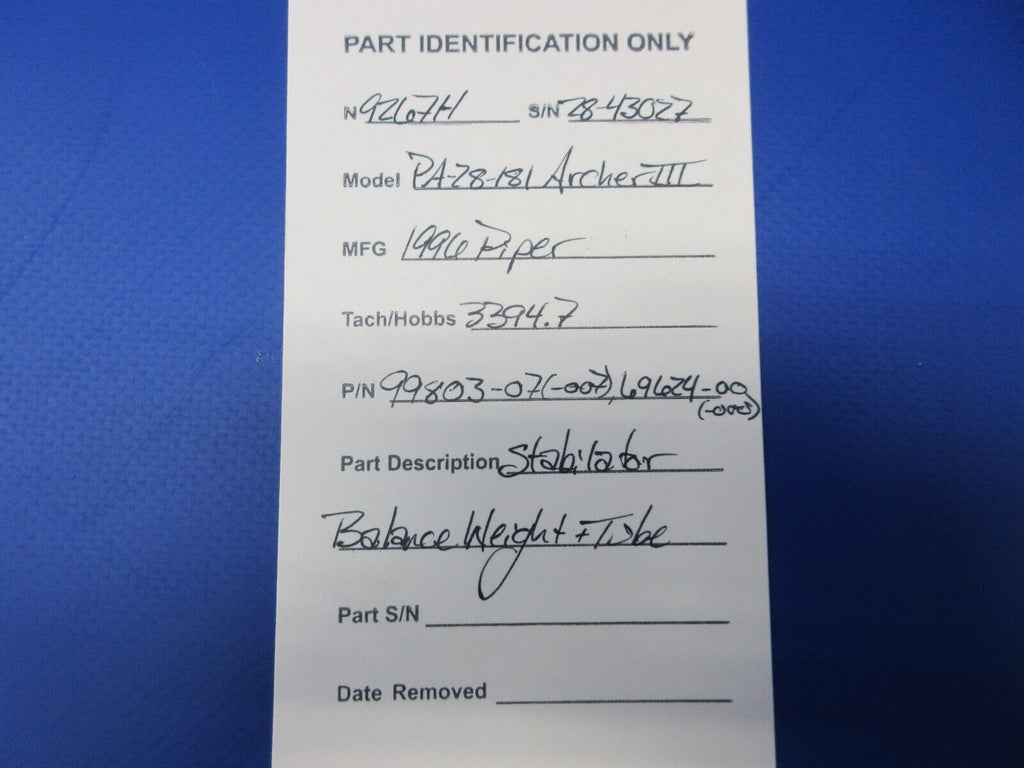 PART IDENTIFICATION ONLY
N 9267H S/N 28-43027
Model PA-28-181 Archer III
MFG 1996 Piper
Tach/Hobbs 3394.7
P/N 99803-07(-007), 69624-00
(-000)
Part Description Stabilator
Balance Weight + Tube
Part S/N
Date Removed